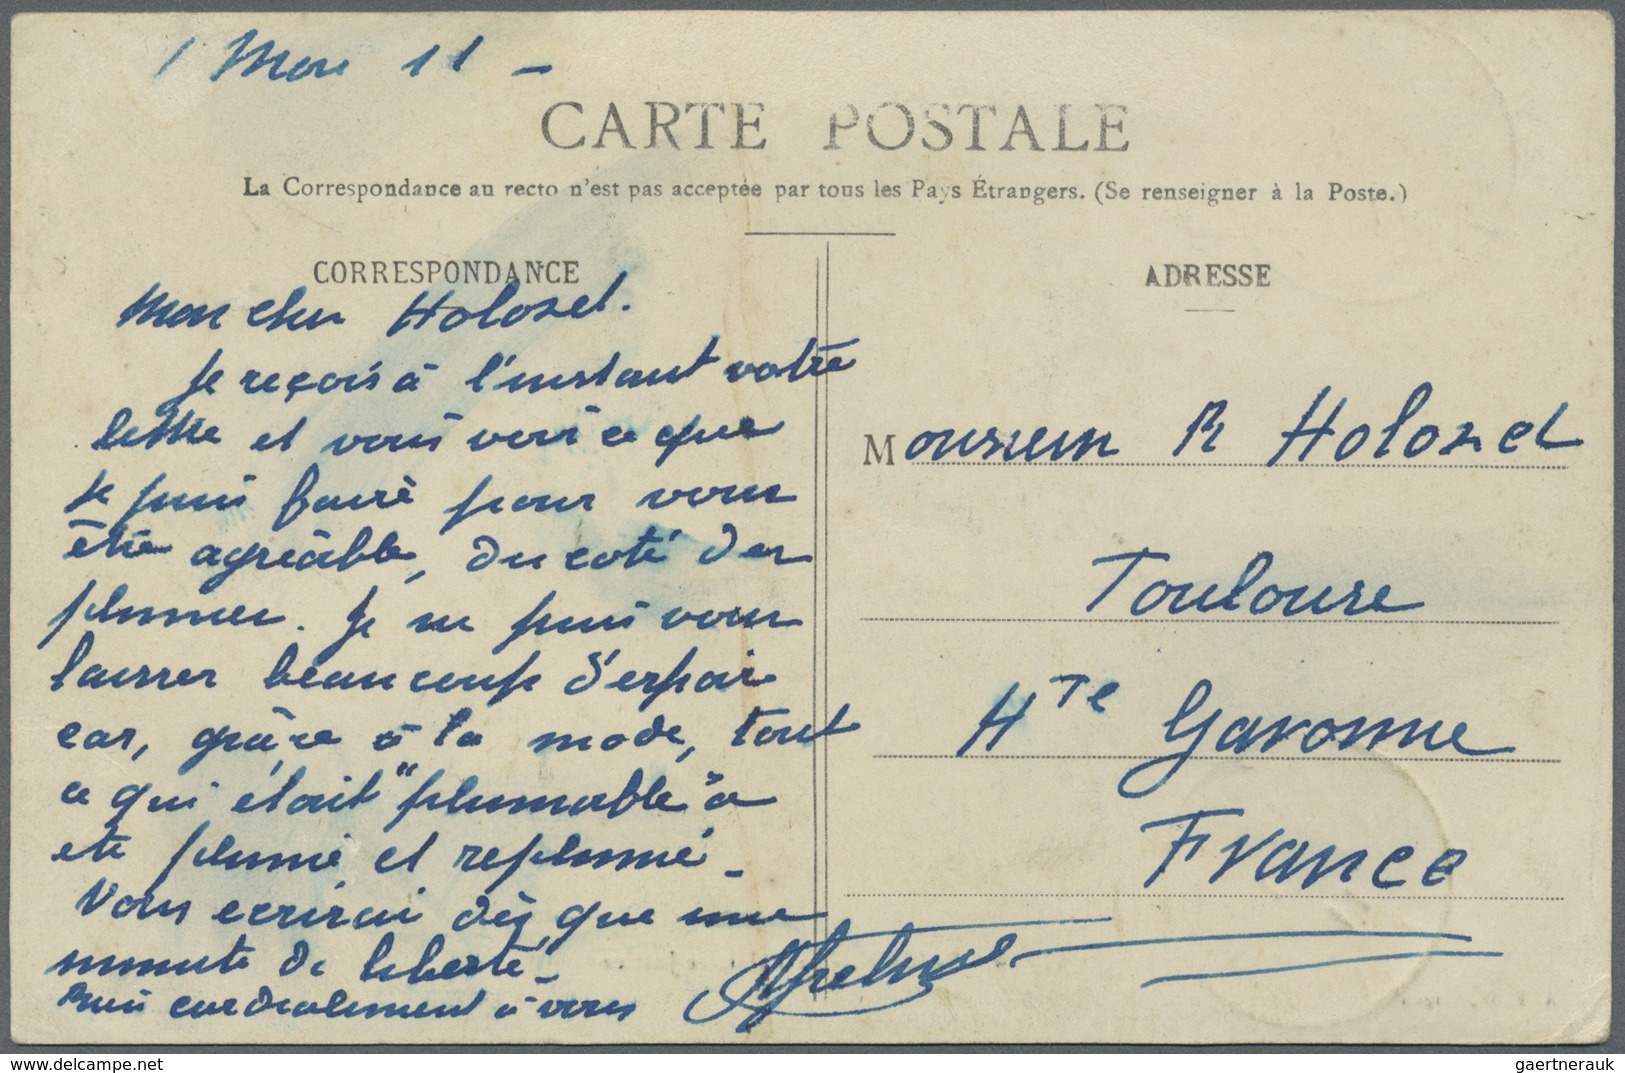 1 Mars 11 -
CARTE POSTALE
La Correspondance au recto n'est pas acceptée par tous les Pays Étrangers. (Se renseigner à la Poste.)
CORRESPONDANCE
Mon cher Holozet.
Je reçois à l'instant votre
lettre et vais voir ce que
je puis faire pour vous
être agréable, du coté des
plumes. Je ne puis vous
laisser beaucoup d'espoir
car, grâce à la mode, tout
ce qui était "plumable" a
été plumé et replumé -
Vous écrirai dès que une
minute de liberté -
Bien cordialement à vous
ADRESSE
Monsieur R Holozet
Toulouse
Hte Garonne
France
delcampe.net
gaertnerauk